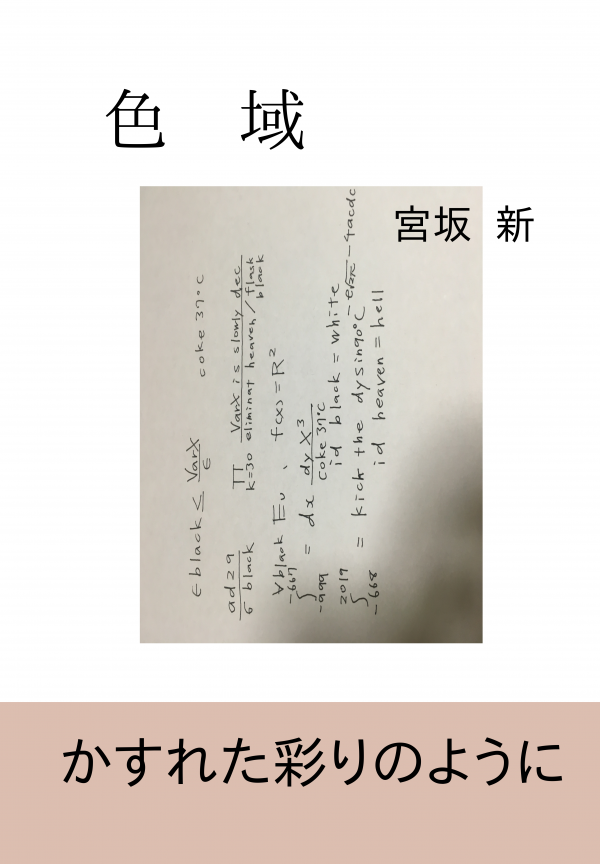 色 域
宮坂 新
∈ black ≤ VarX / ε coke 37°C
ad29 / 6 black
∏ k=30 VarX is slowly dec / eliminat heaven / flask black
∀black
f(x) = R²
-667 ∫ -999 = dx dy X³ / coke 37°C
id black = white
2017 ∫ -668 = kick the dy sin90°C
- 4acdc
id heaven = hell
かすれた彩りのように